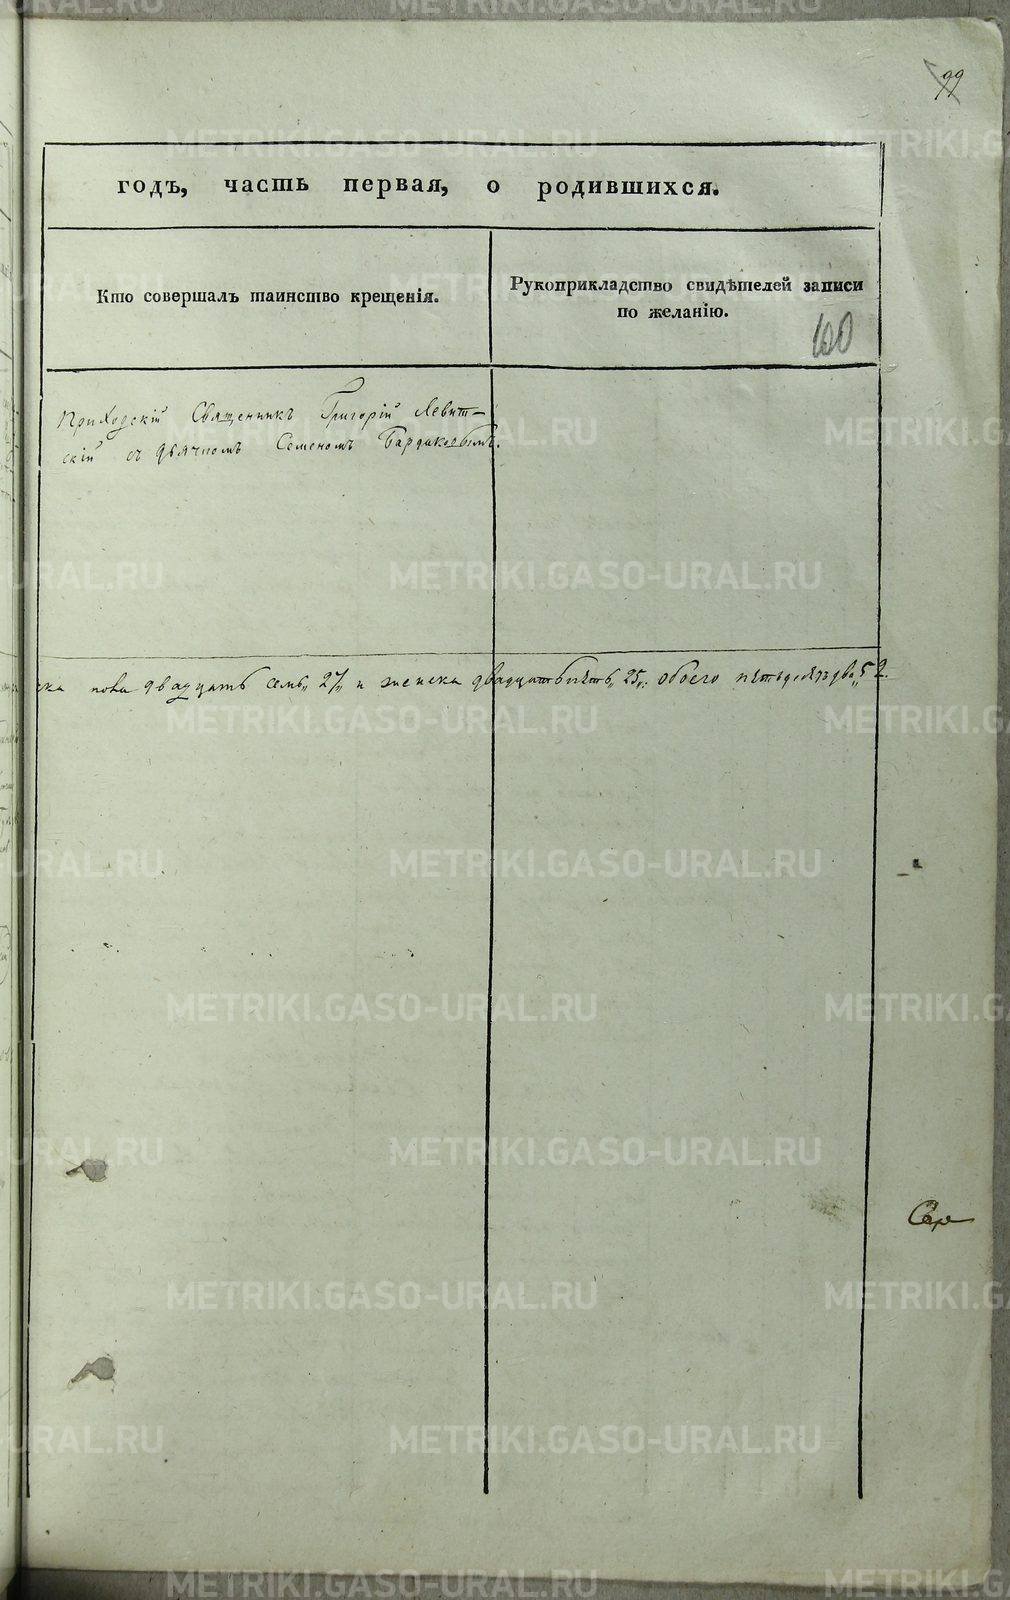 99
годъ, часть первая, о родившихся.
Кто совершалъ таинство крещенія.
Рукоприкладство свидѣтелей записи
по желанію.
100
Приходскій Священникъ Григорій Левит-
скій съ дьячкомъ Семеномъ Бардаковымъ.
ска пола двадцать семь„ 27„ и женска двадцать пять„ 25„. обоего пятьдесятъ два„ 52.
METRIKI.GASO-URAL.RU